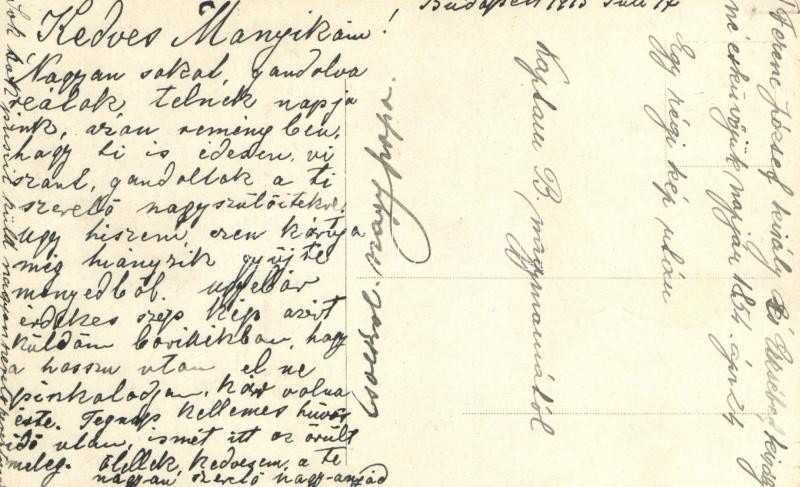 Budapest 1913 Juli 17
Kedves Manyikám!
Nagyon sokat, gondolva
reátok telnek napja
ink, azon reményben,
hogy ti is édesen, vi
szont, gondoltok a ti
szerető nagyszülőitekre.
Ugy hiszem, ezen kártya
még hiányzik gyüjte
ményedből.
érdekes szép kép azért
küldöm boritékban, hogy
a hosszu uton el ne
piszkolodjon, kár volna
érte. Tegnap kellemes hüvös
idő után, ismét itt az őrült
meleg. Ölellek, kedvesem, a te
nagyon szerető nagy-anyád
Sok csokot puszit küld nagyon szerető
Ferenc József király És Erzsébet királyné
né esküvőjük napján 1854. april 24
Egy régi kép után
Kaptam B. nagymamától